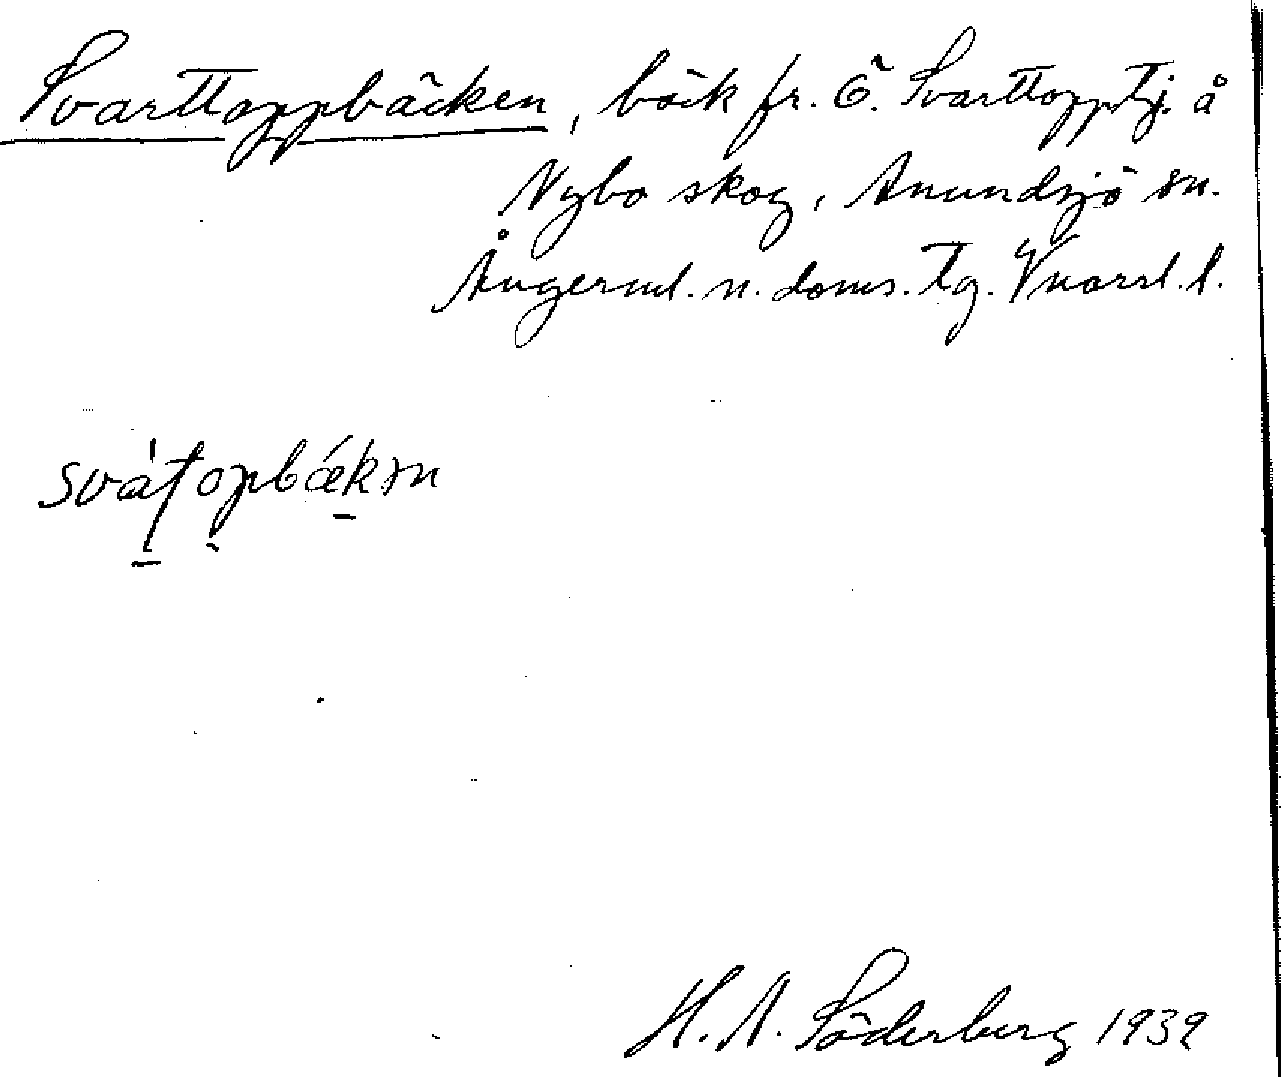 Svarttoppbäcken, bäck fr. Ö. Svarttopptj. å
Nybo skog, Anundsjö sn.
Ångerml. n. doms. tg. Vnorrl. l.
H. A. Söderberg 1939